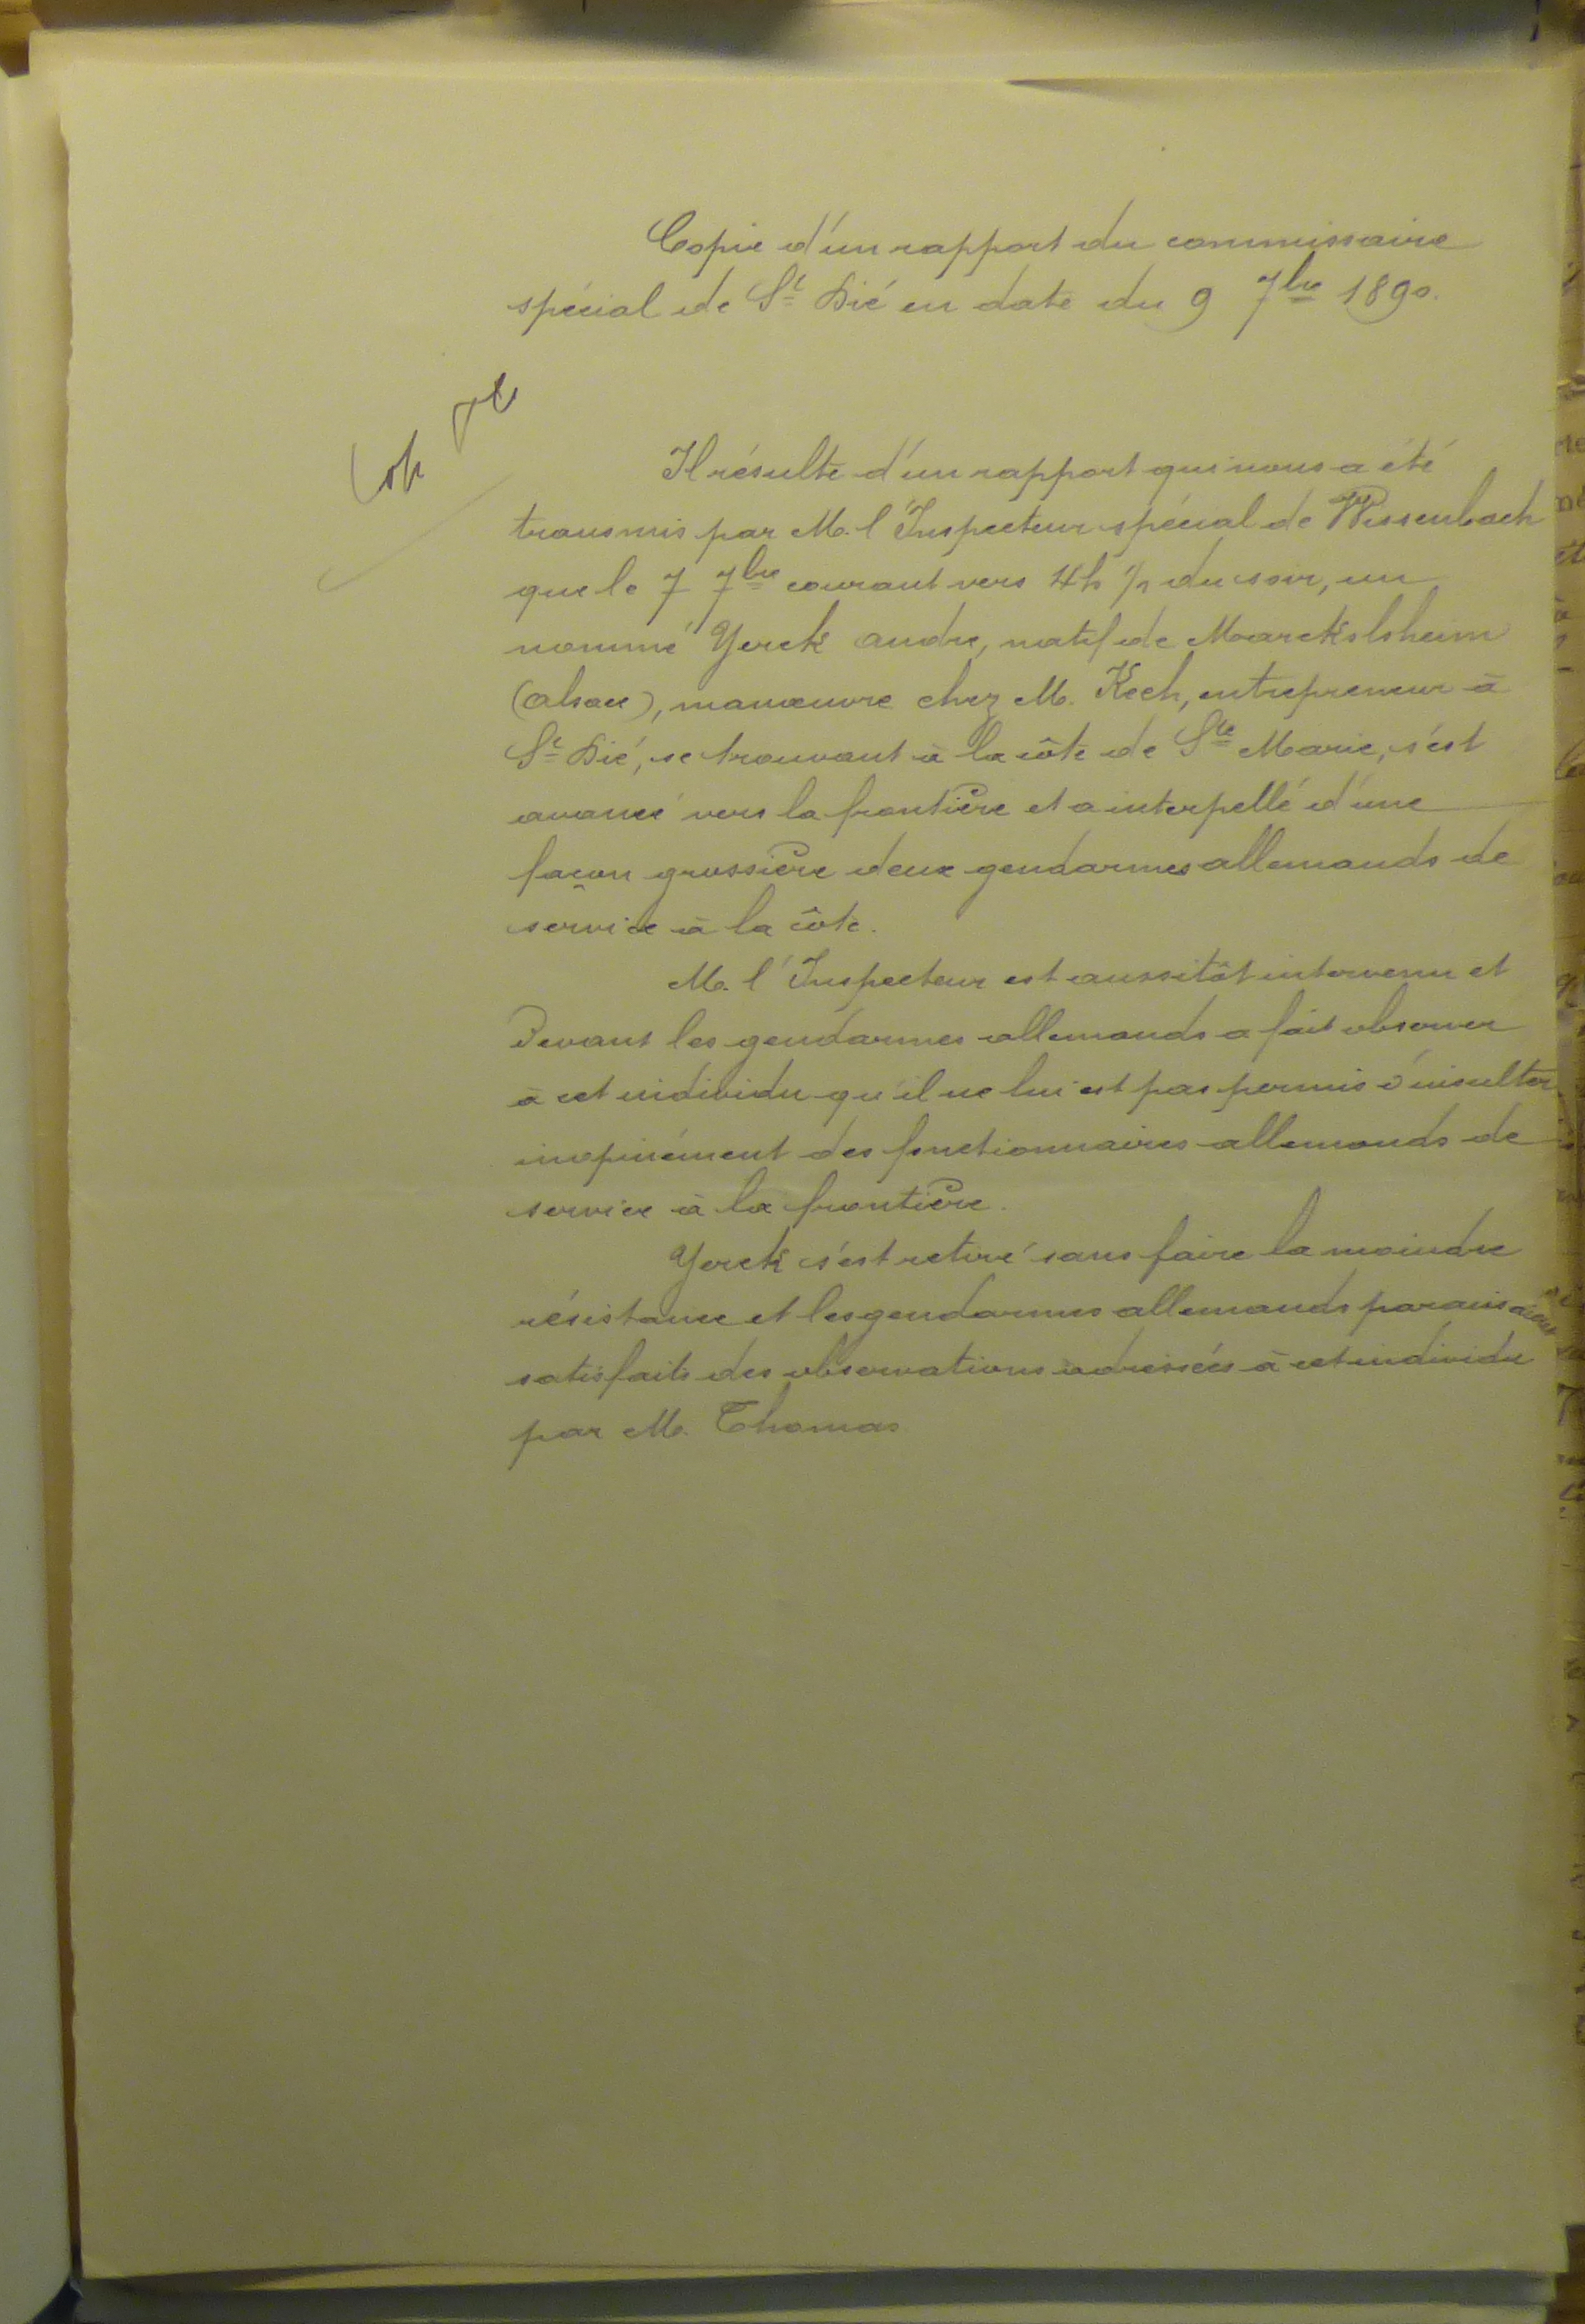 Copie d'un rapport du commissaire
spécial de St Dié en date du 9 7bre 1890.
Il résulte d'un rapport qui nous a été
transmis par M. l'Inspecteur spécial de Wissenbach
que le 7 7bre courant vers 4h ½ du soir, un
nommé Yerek andré, natif de Marckolsheim
(alsace), manœuvre chez M. Kech, entrepreneur à
St Dié, se trouvant à la côte de Ste Marie, s'est
avancé vers la frontière et a interpellé d'une
façon grossière deux gendarmes allemands de
service à la côte.
M. l'Inspecteur est aussitôt intervenu et
Devant les gendarmes allemands a fait observer
à cet individu qu'il ne lui est pas permis d'insulter
inopinément des fonctionnaires allemands de
service à la frontière.
Yerek s'est retiré sans faire la moindre
résistance et les gendarmes allemands paraissaient
satisfaits des observations adressées à cet individu
par M. Thomas